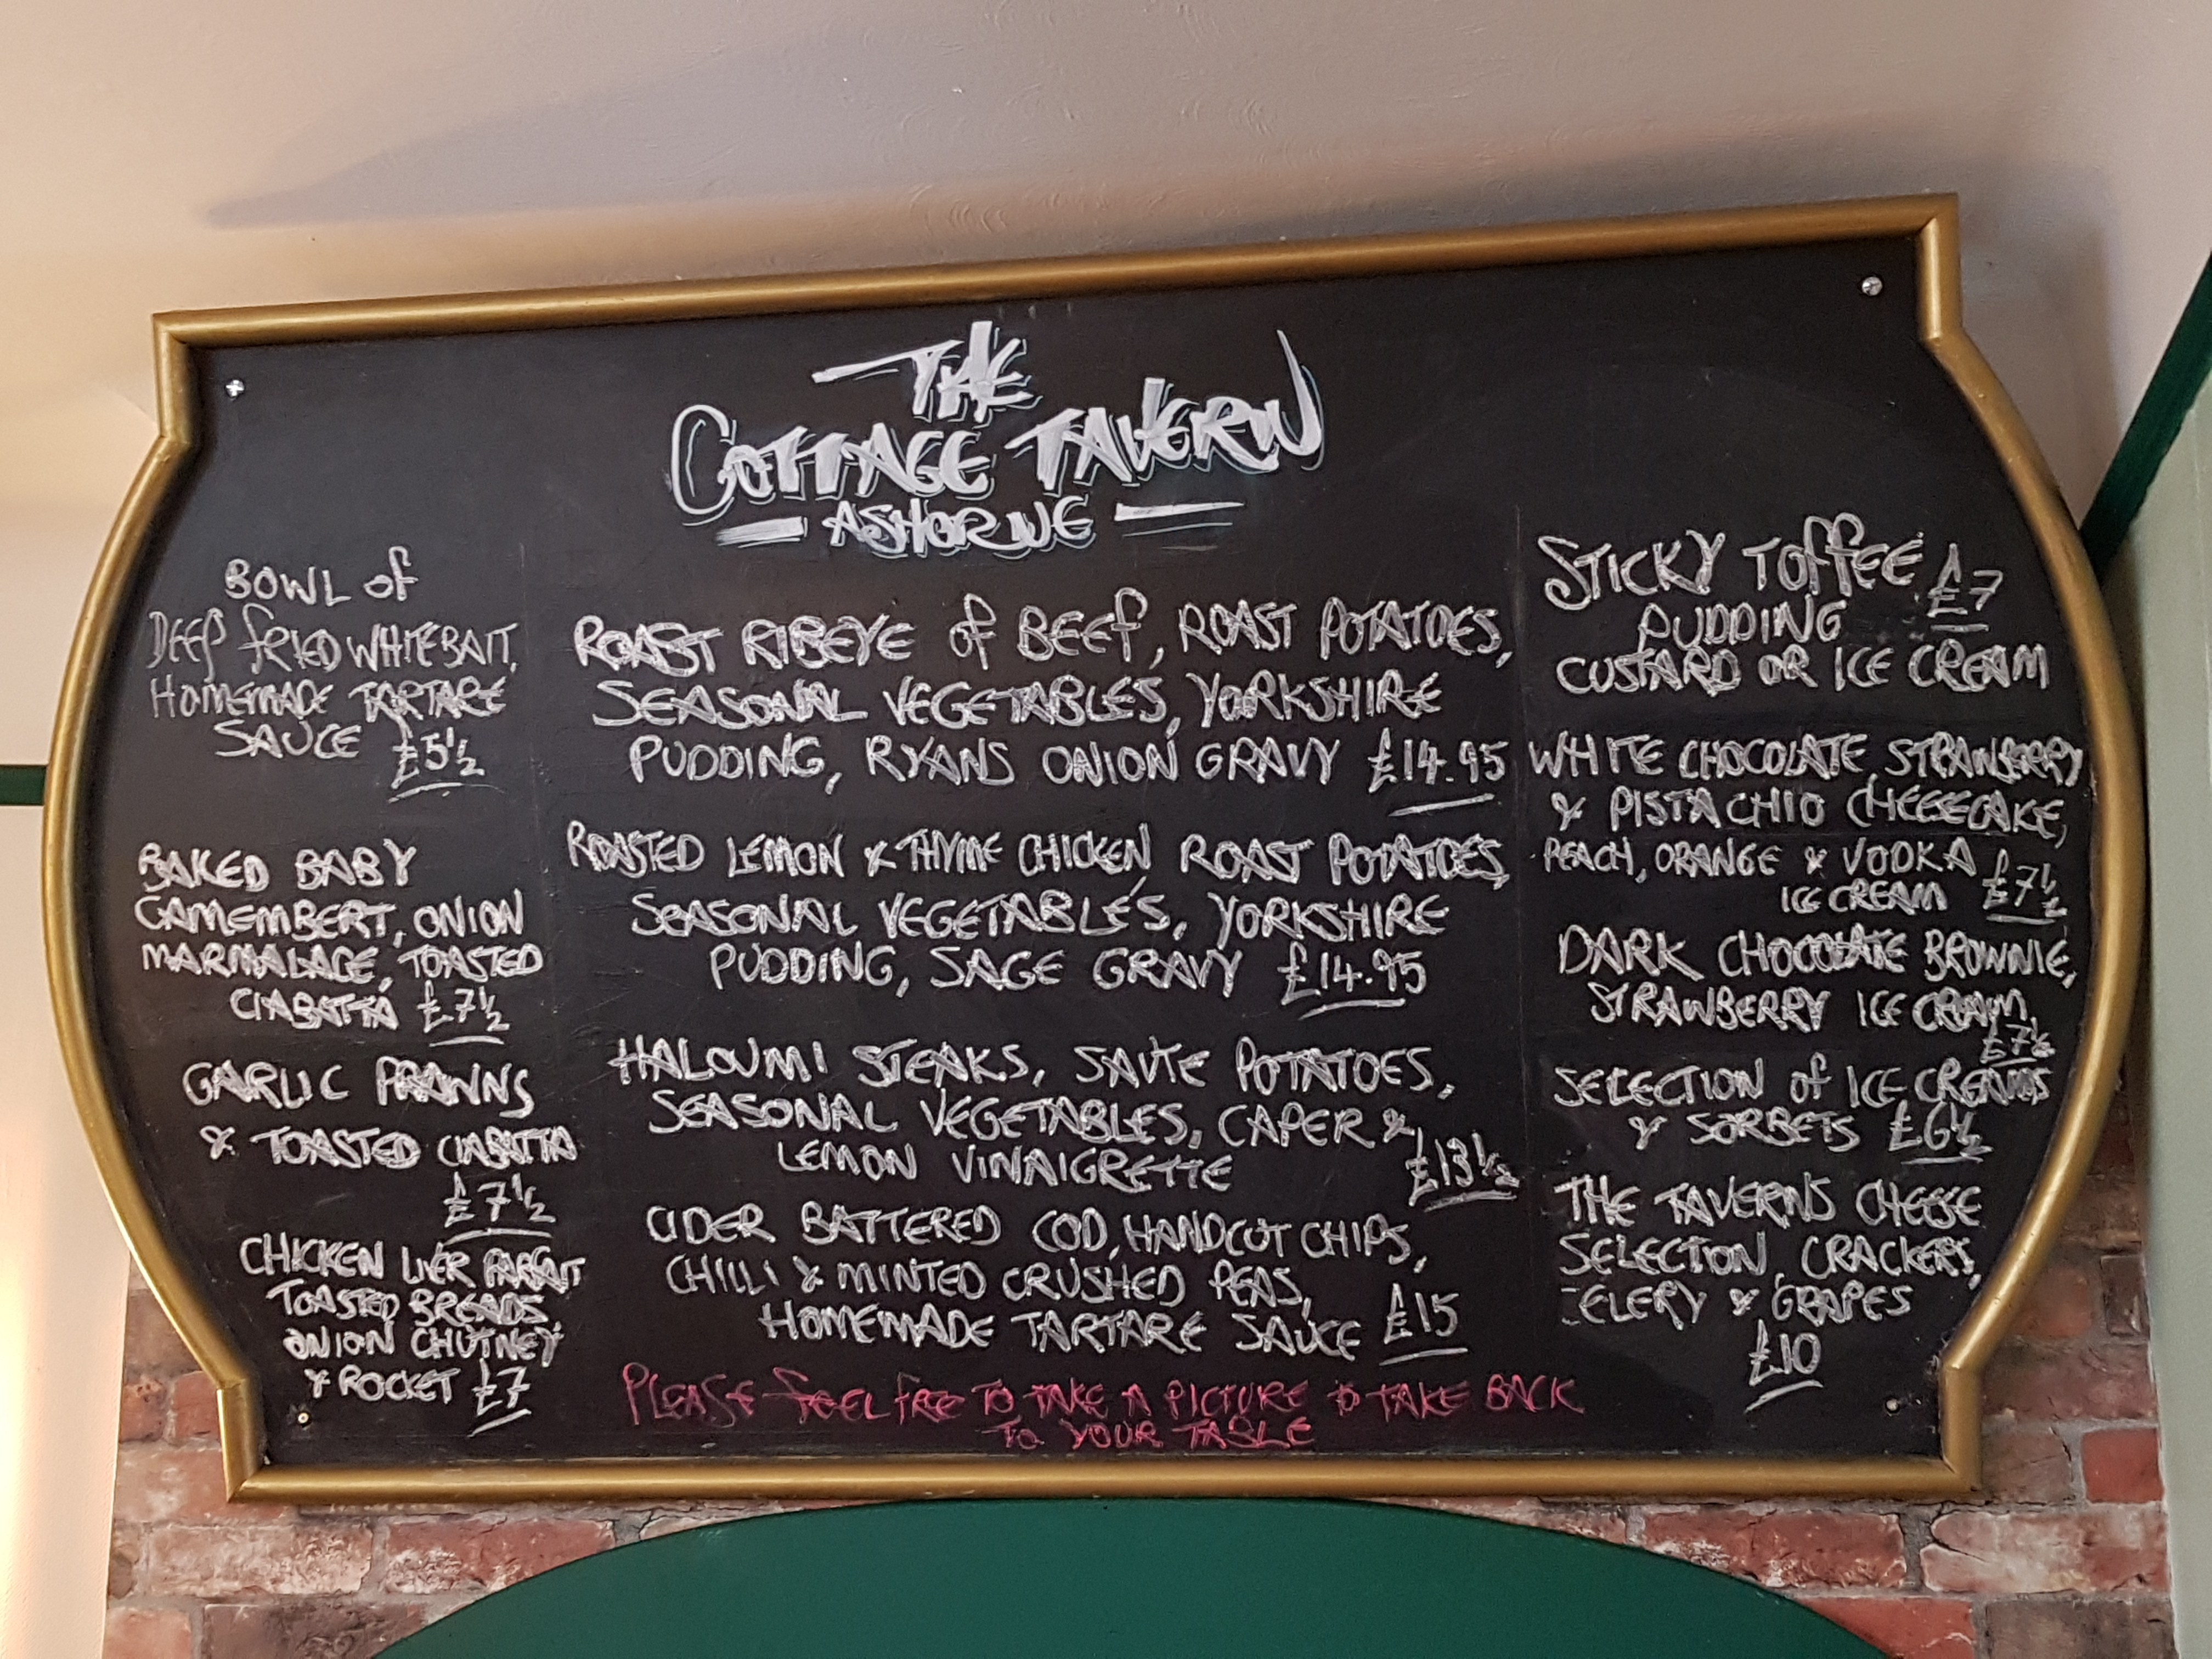 THE
COTTAGE TAVERN
ASHORNE
BOWL of
DEEP fRIED WHITEBAIT,
HOMEMADE TARTARE
SAUCE £5½
BAKED BABY
CAMEMBERT, ONION
MARMALADE, TOASTED
CIABATTA £7½
GARLIC PRAWNS
& TOASTED CIABATTA
£7½
CHICKEN LIVER PARFAIT
TOASTED BREADS,
ONION CHUTNEY
& ROCKET £7
ROAST RIBEYE of BEEf, ROAST POTATOES,
SEASONAL VEGETABLES, YORKSHIRE
PUDDING, RYANS ONION GRAVY £14.95
ROASTED LEMON & THYME CHICKEN, ROAST POTATOES,
SEASONAL VEGETABLES, YORKSHIRE
PUDDING, SAGE GRAVY £14.95
HALOUMI STEAKS, SAUTE POTATOES,
SEASONAL VEGETABLES, CAPER &
LEMON VINAIGRETTE £13½
CIDER BATTERED COD, HANDCUT CHIPS,
CHILLI & MINTED CRUSHED PEAS,
HOMEMADE TARTARE SAUCE £15
STICKY TOffEE £7
PUDDING
CUSTARD OR ICE CREAM
WHITE CHOCOLATE, STRAWBERRY
& PISTACHIO CHEESECAKE,
PEACH, ORANGE & VODKA
ICE CREAM £7½
DARK CHOCOLATE BROWNIE,
STRAWBERRY ICE CREAM
£7½
SELECTION of ICE CREAMS
& SORBETS £6½
THE TAVERNS CHEESE
SELECTION, CRACKERS,
CELERY & GRAPES
£10
PLEASE fEEL fREE TO TAKE A PICTURE TO TAKE BACK
TO YOUR TABLE